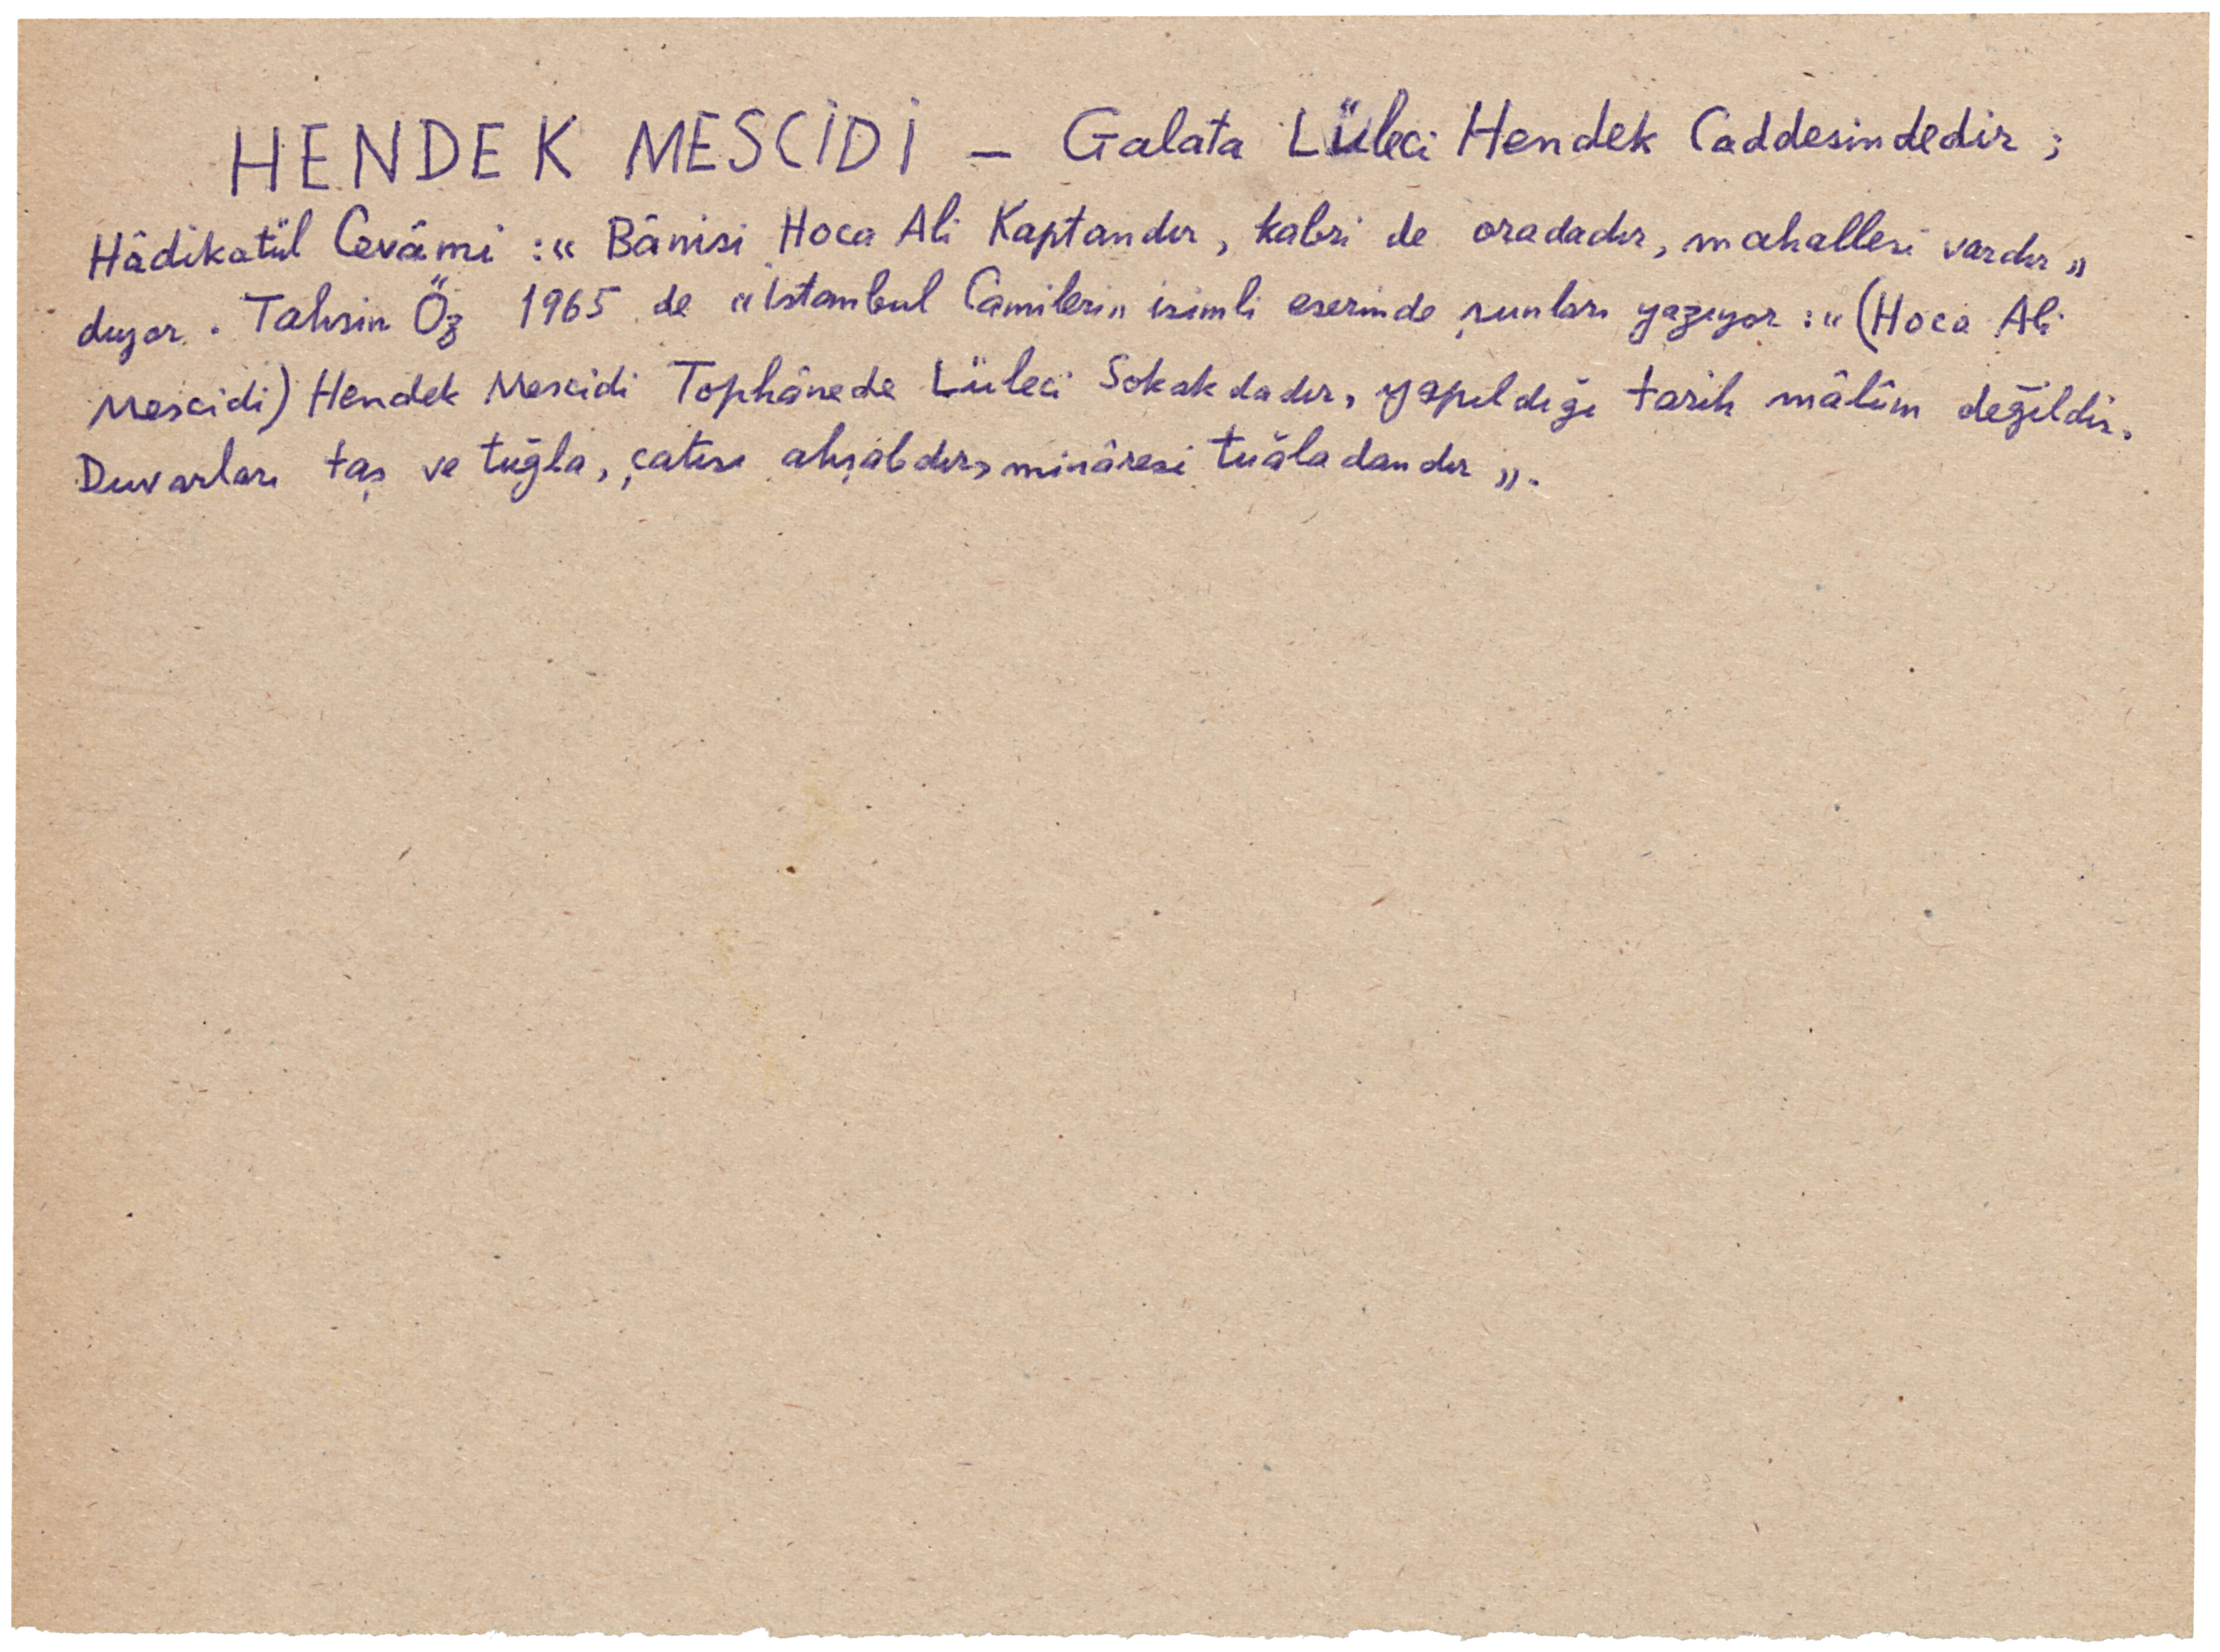 HENDEK MESCİDİ — Galata Lüleci Hendek Caddesindedir ;
Hâdikatül Cevâmi : « Bânisi Hoca Ali Kaptandır , kabri de oradadır, mahallesi vardır »
diyor . Tahsin Öz 1965 de « İstanbul Camileri » isimli eserinde şunları yazıyor : « (Hoca Ali
Mescidi) Hendek Mescidi Tophânede Lüleci Sokakdadır, yapıldığı tarih mâlûm değildir.
Duvarları taş ve tuğla, çatısı ahşabdır, minâresi tuğladandır ».